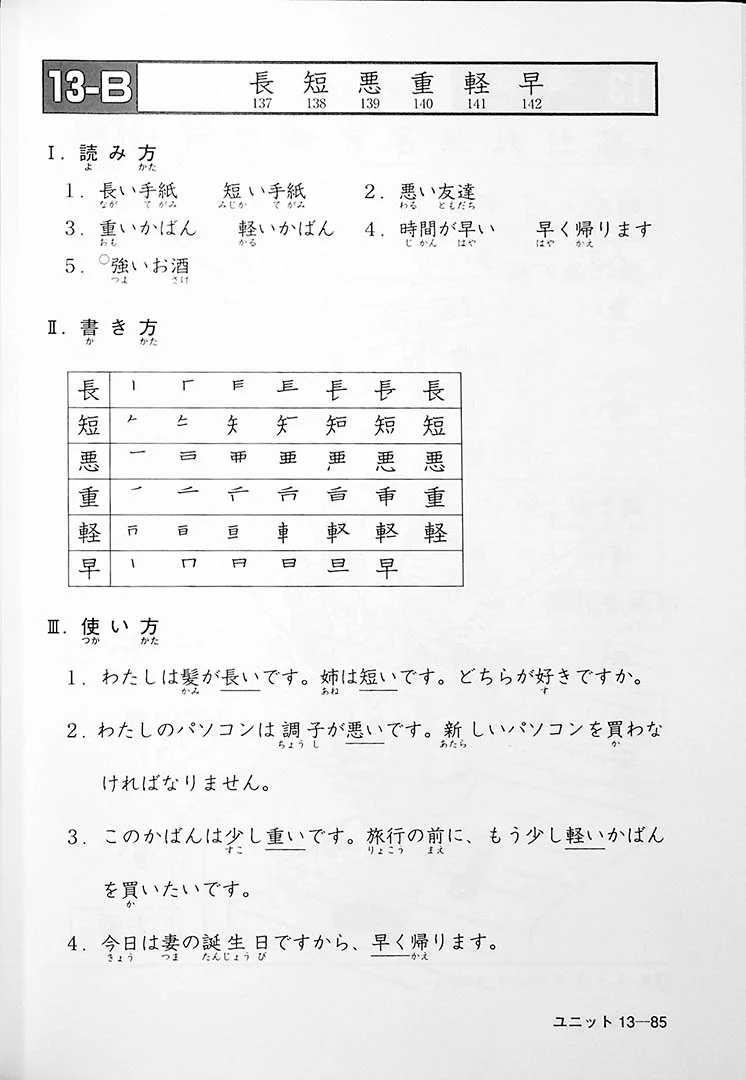 13-B 長 短 悪 重 軽 早
137 138 139 140 141 142
Ⅰ. 読み方
よ かた
1. 長い手紙 短い手紙 2. 悪い友達
なが てがみ みじか てがみ わる ともだち
3. 重いかばん 軽いかばん 4. 時間が早い 早く帰ります
おも かる じかん はや はや かえ
5. ○強いお酒
つよ さけ
Ⅱ. 書き方
か かた
長 長
短 短
悪 悪
重 重
軽 軽
早 早
Ⅲ. 使い方
つか かた
1. わたしは髪が長いです。姉は短いです。どちらが好きですか。
かみ あね す
2. わたしのパソコンは調子が悪いです。新しいパソコンを買わな
ちょうし あたら か
ければなりません。
3. このかばんは少し重いです。旅行の前に、もう少し軽いかばん
すこ りょこう まえ
を買いたいです。
か
4. 今日は妻の誕生日ですから、早く帰ります。
きょう つま たんじょうび かえ
ユニット 13—85